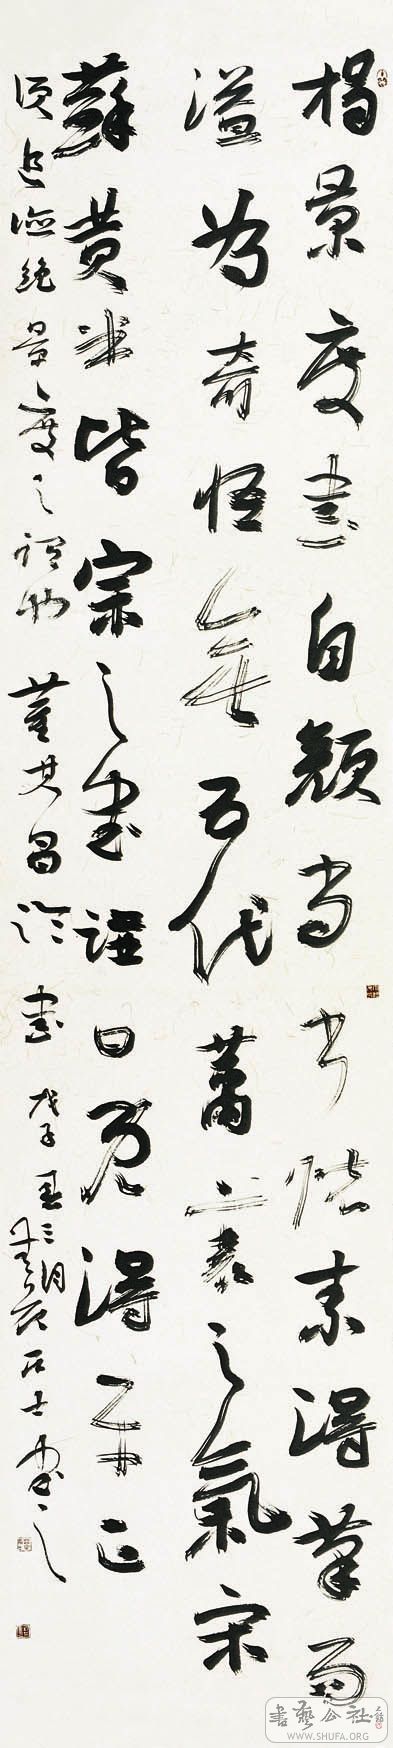 楊景度書自顏尚书怀素得筆而
溢為奇怪無五代蕭衰之氣宋
蘇黃米皆宗之書譜曰既得平正
須追險絕景度之謂也 董其昌論書 戊子 三月 石士書之
書藝公社
WWW.SHUFA.ORG